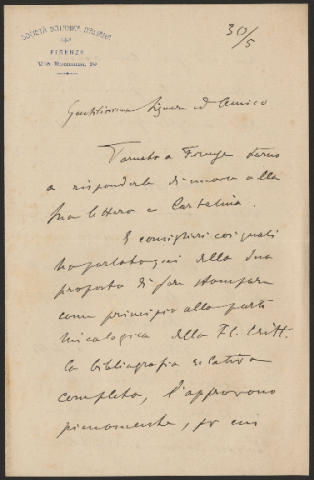 SOCIETÀ BOTANICA ITALIANA
FIRENZE
Via Romana, 19
30/5
Gentilissimo Signore ed Amico
Tornato a Firenze torno
a risponderle di nuovo alla
sua lettera e Cartolina.
I consiglieri coi quali
ho parlato già della sua
proposta di fare stampare
come principio alla parte
micologica della Fl. Critt.
la bibliografia relativa
completa, l'approvono
pienamente, per cui